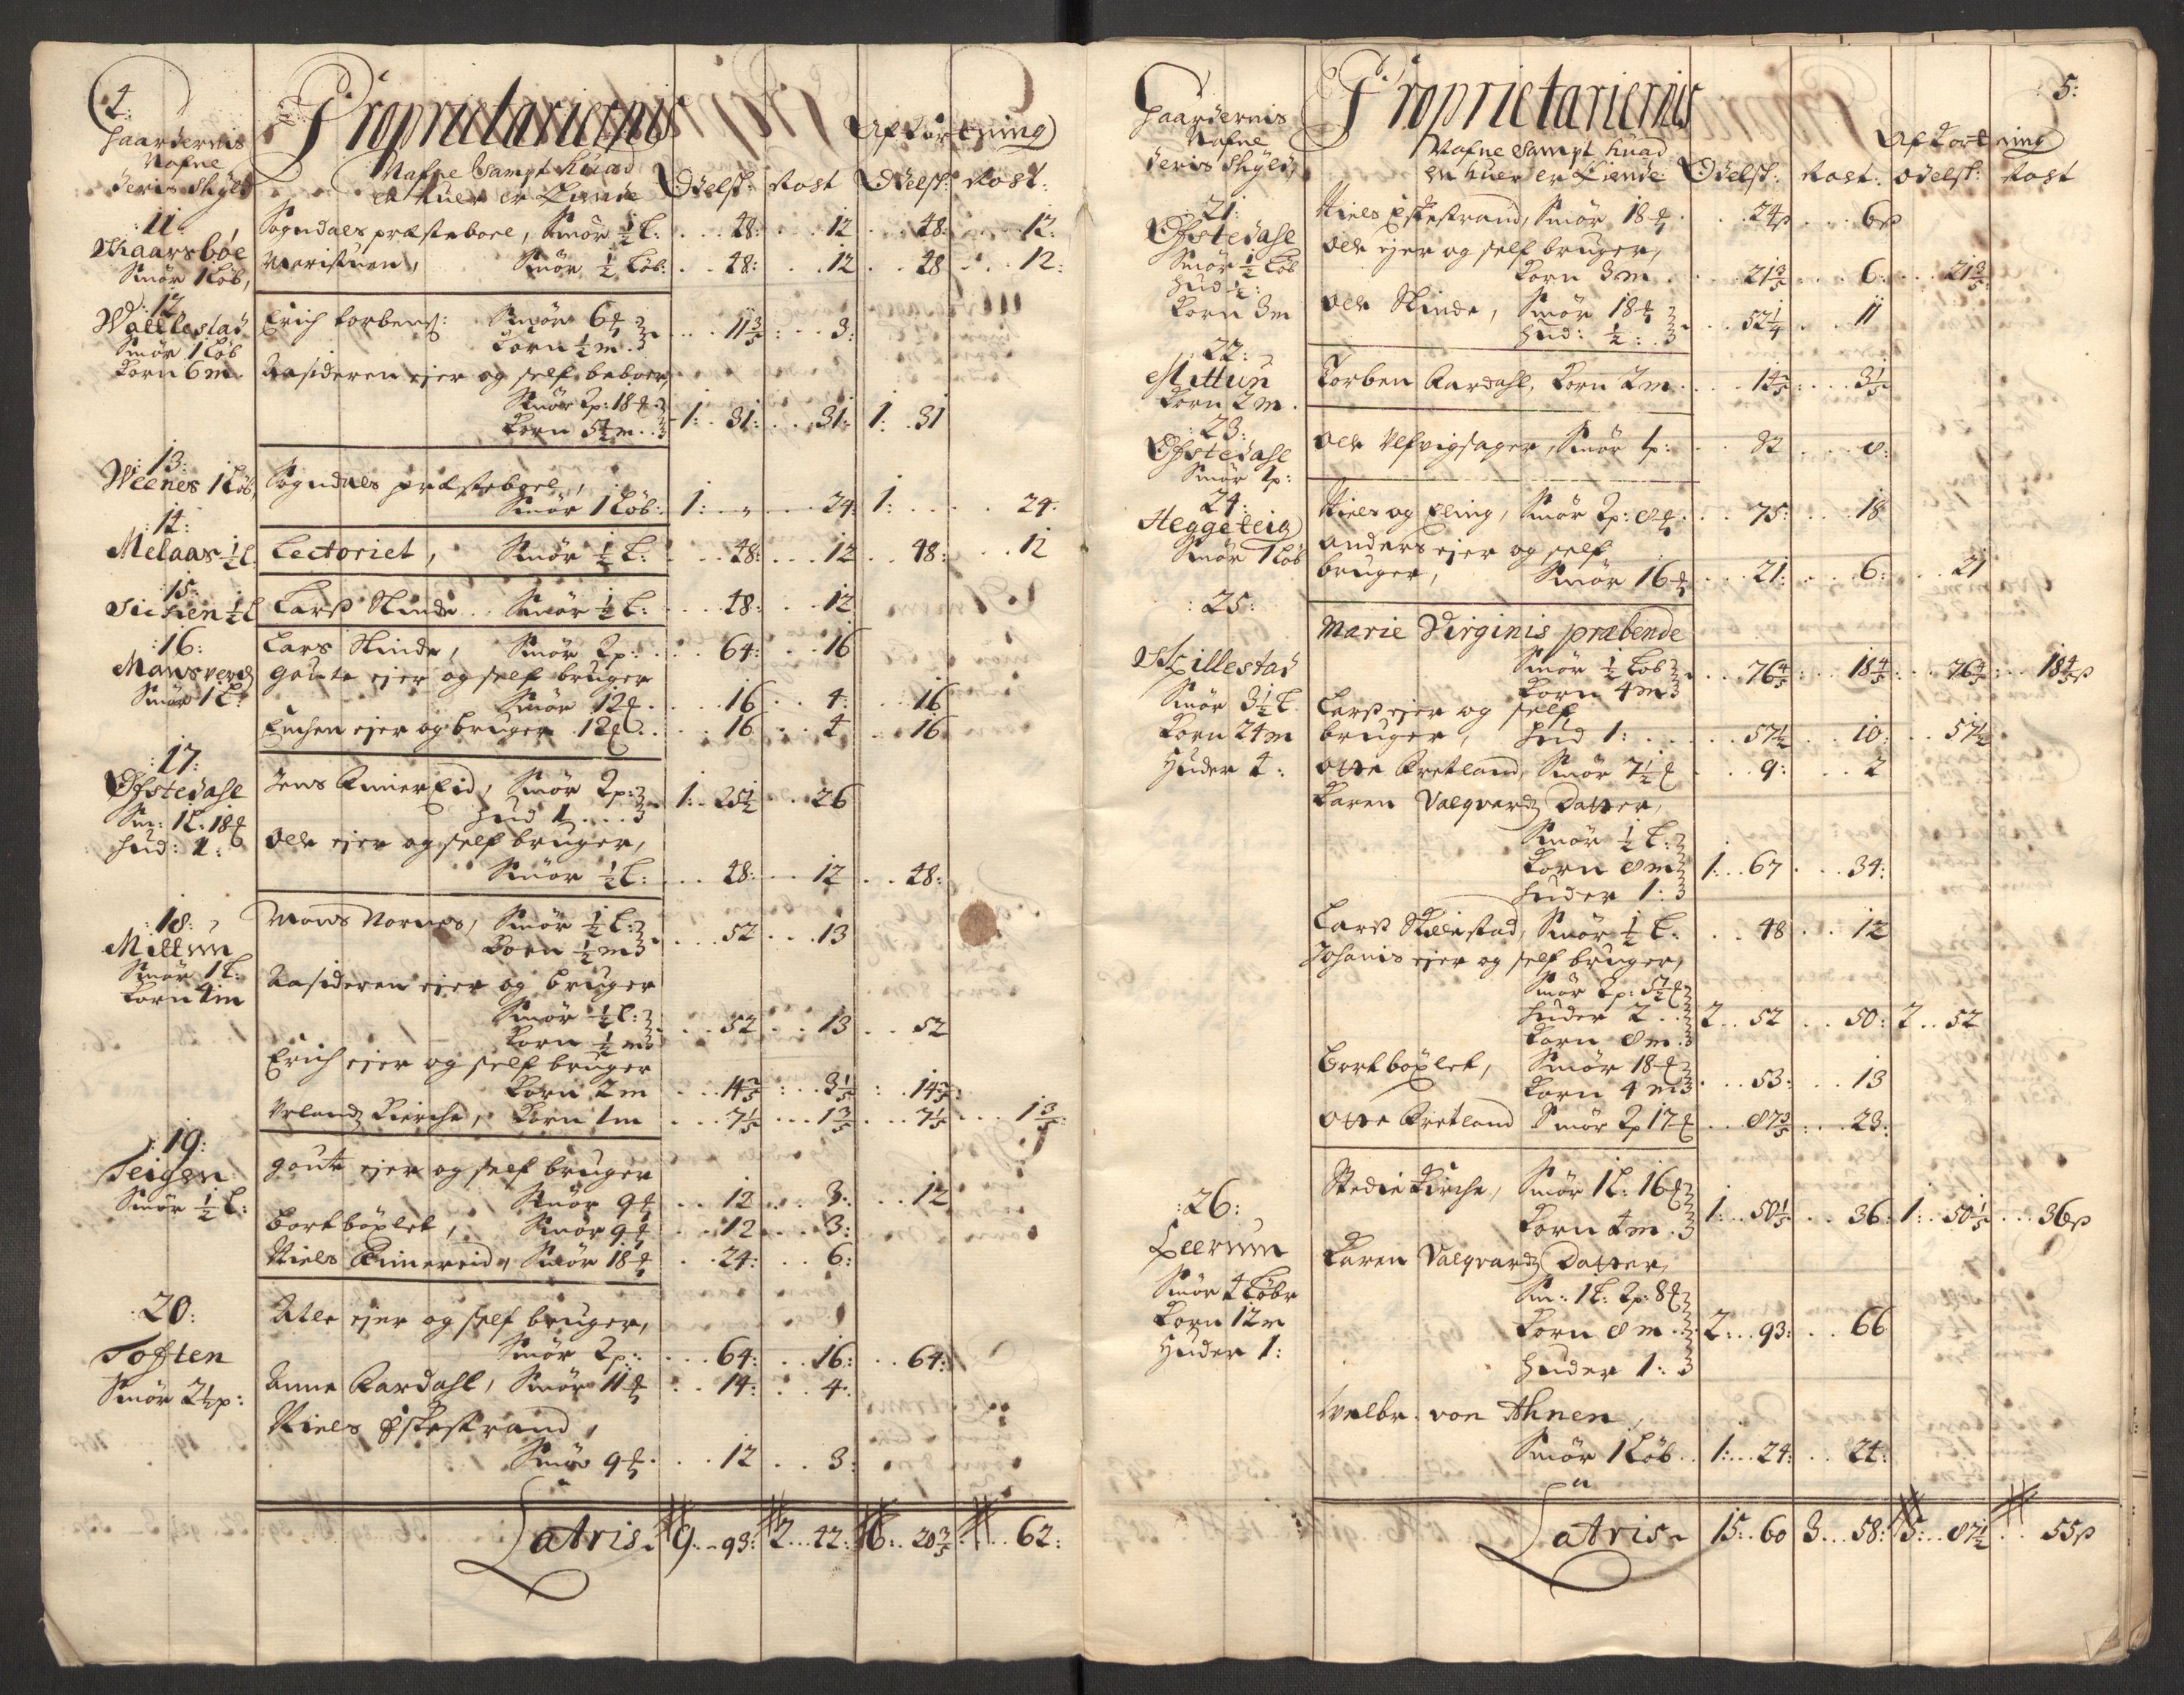 4.
Gaardernis
Nafne
deris Skÿld
Proprietariernis
Nafne Sampt huad
en huer er Eiende
Odelsk: Rost
Afkortning
Odelsk: Rost:
:11:
Skaarsbøe
Smør 1 Løb,
Sogndals præsteboel, Smør ½ L: 48: 12 48: 12:
Smør ½ Løb: 48: 12 48 12:
:12:
Wallestad
Smør 1 Løb
Korn 6 m.
Erich Torbens: Smør 6 Korn ½ m. 11 3/5: 3:
Aasideren ejer og self beboer
Smør 2 p: 18 Korn 5½ m. 1: 31: 31: 1: 31
:13:
Weenes 1 Løb,
Sogndals præsteboel,
Smør 1 Løb: 1: „ 24: 1: 24:
:14:
Melaas ½ L
Lectoriet, Smør ½ L: 48: 12 48: 12
:15:
½ L
Larss Stinde Smør ½ L: 48: 12
:16:
Mansverch
Smør 1 L:
Lars Stinde, Smør 2 p: 64: 16
Goute ejer og self bruger
Smør 12 16 4: 16
ejer og bruger 12 16 4 16
:17:
Øfstedahl
Sm: 1 L. 18
hud: 1:
Jens Rimereid, Smør 2 p: hud 1 1: 25½ 26
Ole ejer og self bruger,
Smør ½ L: 48: 12 48:
:18:
Mittun
Smør 1 L:
Korn 4 m
Mons Nornes, Smør ½ L: Korn ½ m 52 13
Aasideren ejer og bruger
Smør ½ L:
Korn ½ m 52 13 52
Erich ejer og self bruger
Korn 2 m 14 2/5 3 1/5 14 2/5
Urlands Kierche, Korn 1 m 7 1/5 1 3/5 7 1/5 1 3/5
:19:
Teigen
Smør ½ L:
Goute ejer og self bruger
Smør 9 12 3: 12
Bortbøxlet, Smør 9 12 3:
Niels Rimereid, Smør 18 24: 6:
:20:
Toften
Smør 2½ p:
Atle ejer og self bruger,
Smør 2 p: 64: 16: 64:
Anne Aardahl, Smør 11 14: 4:
Niels Eskestrand,
Smør 9 12 3:
Latris 9 93: 2 42: 6: 20 3/5 62:
5:
Gaardernis
Nafne
deris Skÿld,
Proprietariernis
Nafne Sampt huad
en huer er Eiende
Odelsk: Rost:
Afkortning
odelsk: Rost
:21:
Øfstedahl
Smør ½ Løb
hud ½:
Korn 3 m
Niels Eskestrand, Smør 18 24 ß 6 ß
Ole ejer og self bruger,
Korn 3 m 21 3/5 6: 21 3/5
Ole Stinde, Smør 18 hud: ½: 52 ¼ 11
:22:
Mittun
Korn 2 m.
Torben Aardahl, Korn 2 m 14 2/5: 3 1/5
:23:
Øfstedahl
Smør 1 p:
Ole Ulfvigsager, Smør 1 p: 32 8:
24:
Heggeteig
Smør 1 Løb
Niels og Eling, Smør 2 p: 8 75: 18
Anders ejer og self
bruger, Smør 16 21: 6: 21
:25:
Skillestad
Smør 3½ L
Korn 24 m
Huder 4:
Marie Virginis præbende
Smør ½ Løb
Korn 4 m 76 4/5: 18 4/5 76 4/5: 18 4/5 ß
Larss ejer og self
bruger, hud 1: 57½ 10: 57½
Otte Bretland, Smør 7½ 9: 2
Karen Valqvards Datter,
Smør ½ L:
Korn 8 m 1: 67 34:
Huder 1:
Larss Skillestad, Smør ½ L. 48 12
Johanis ejer og self bruger,
Smør 2 p: 5½
Huder 2 2 52 50: 2 52
Korn 8 m
Bortbøxlet, Smør 18
Korn 4 m 53: 13
Otte Bretland Smør 2 p 17 87 3/5 23:
:26:
Leerum
Smør 4 Løbe
Korn 12 m
Huder 1:
Stedie Kirche, Smør 1 L: 16
Korn 4 m 1: 50 1/5 36: 1: 50 1/5 36 ß
Karen Valqvards Datter,
Sm: 1 L: 2 p: 8
Korn 8 m 2: 93: 66
Huder 1:
Velbr. von Ahnen,
Smør 1 Løb 1: 24: 24:
Latris 15: 60 3 58: 5: 87½ 55 ß